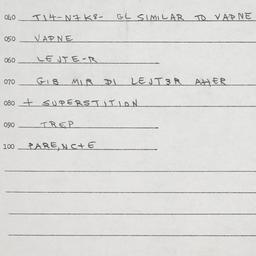 040 T14-N7K8- GL SIMILAR TO VAPNE
050 VAPNE
060 LEJTE-R
070 GIB MIR DI LEJT3R AHER
080 + SUPERSTITION
090 TREP
100 PARE,NC+E